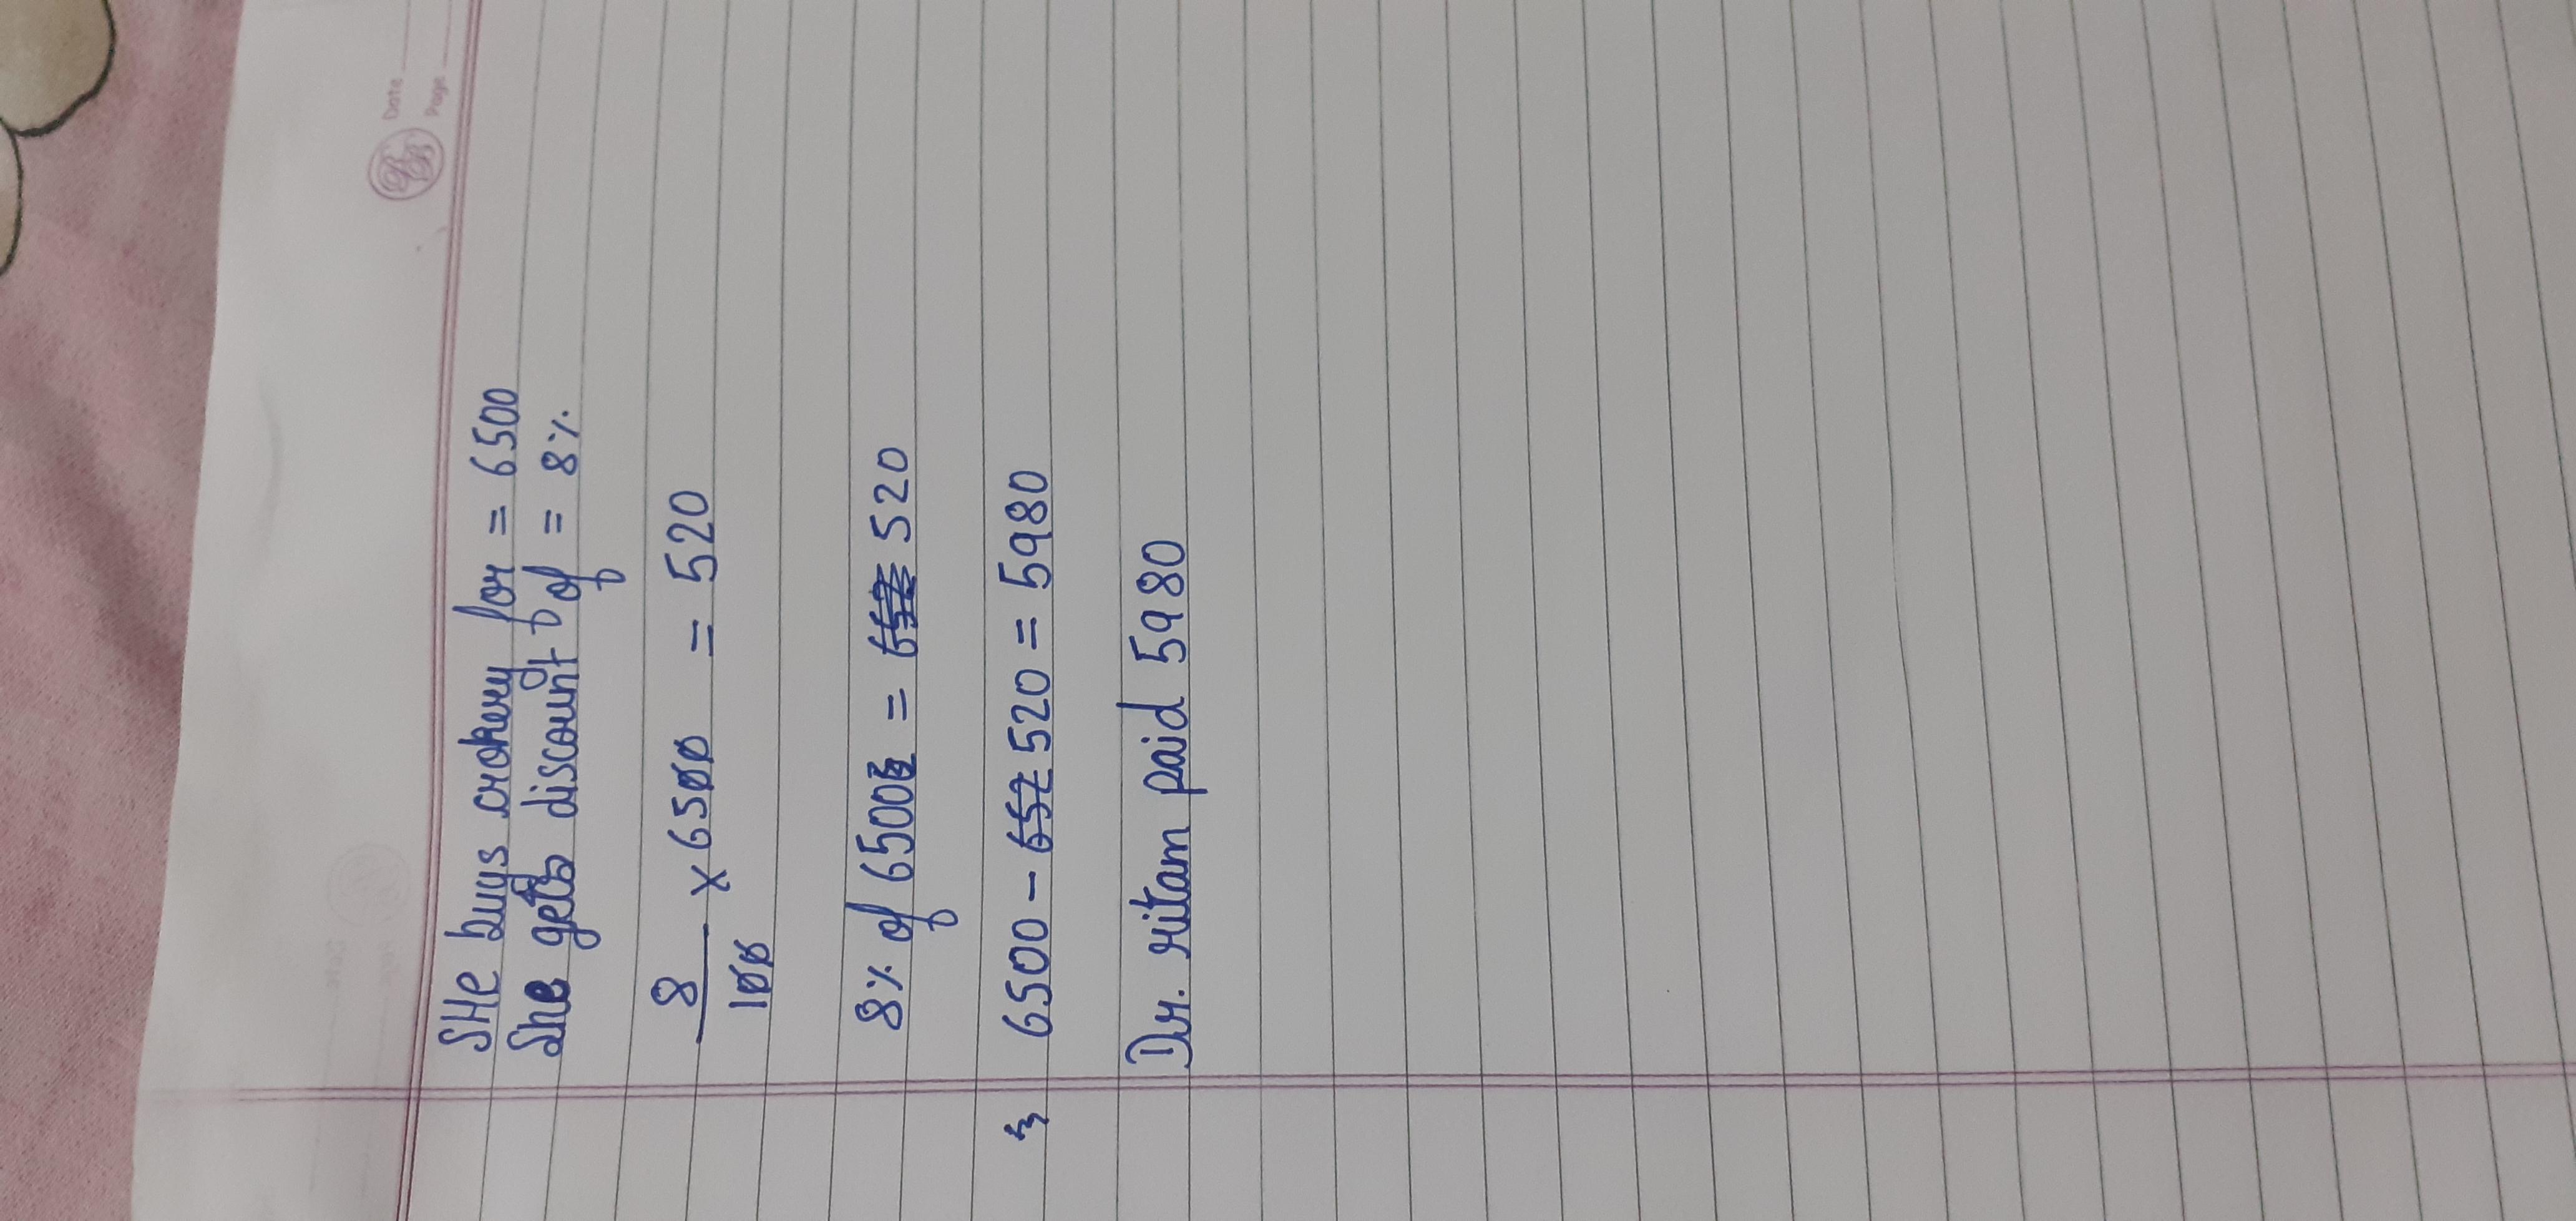 Date
Page
SHe buys crokery for = 6500
She gets discount of = 8%
8
100 × 6500 = 520
8% of 6500 = 652 520
6500 - 652 520 = 5980
Dr. ritam paid 5980